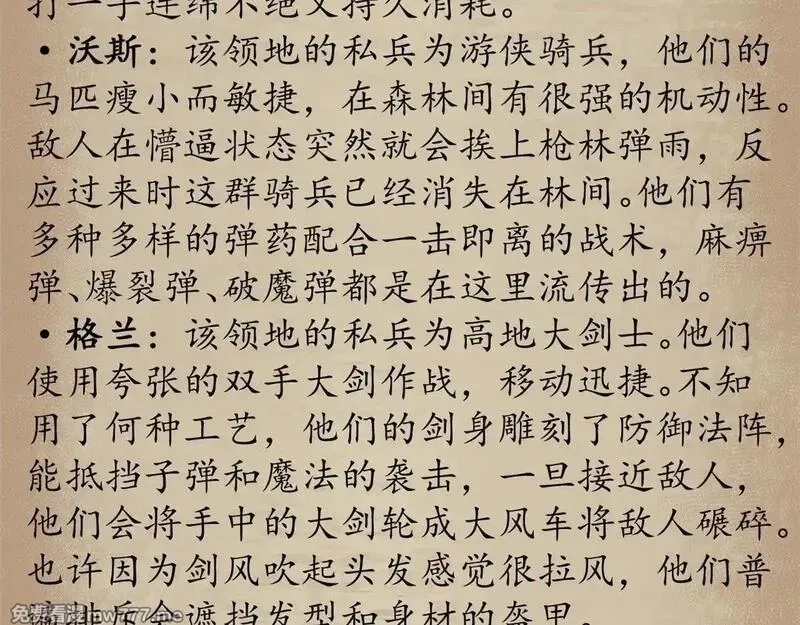 打一手连绵不绝又持久消耗。
·沃斯：该领地的私兵为游侠骑兵，他们的
马匹瘦小而敏捷，在森林间有很强的机动性。
敌人在懵逼状态突然就会挨上枪林弹雨，反
应过来时这群骑兵已经消失在林间。他们有
多种多样的弹药配合一击即离的战术，麻痹
弹、爆裂弹、破魔弹都是在这里流传出的。
·格兰：该领地的私兵为高地大剑士。他们
使用夸张的双手大剑作战，移动迅捷。不知
用了何种工艺，他们的剑身雕刻了防御法阵，
能抵挡子弹和魔法的袭击，一旦接近敌人，
他们会将手中的大剑轮成大风车将敌人碾碎。
也许因为剑风吹起头发感觉很拉风，他们普
排斥会遮挡发型和身材的盔甲。
免费看漫nw777.me